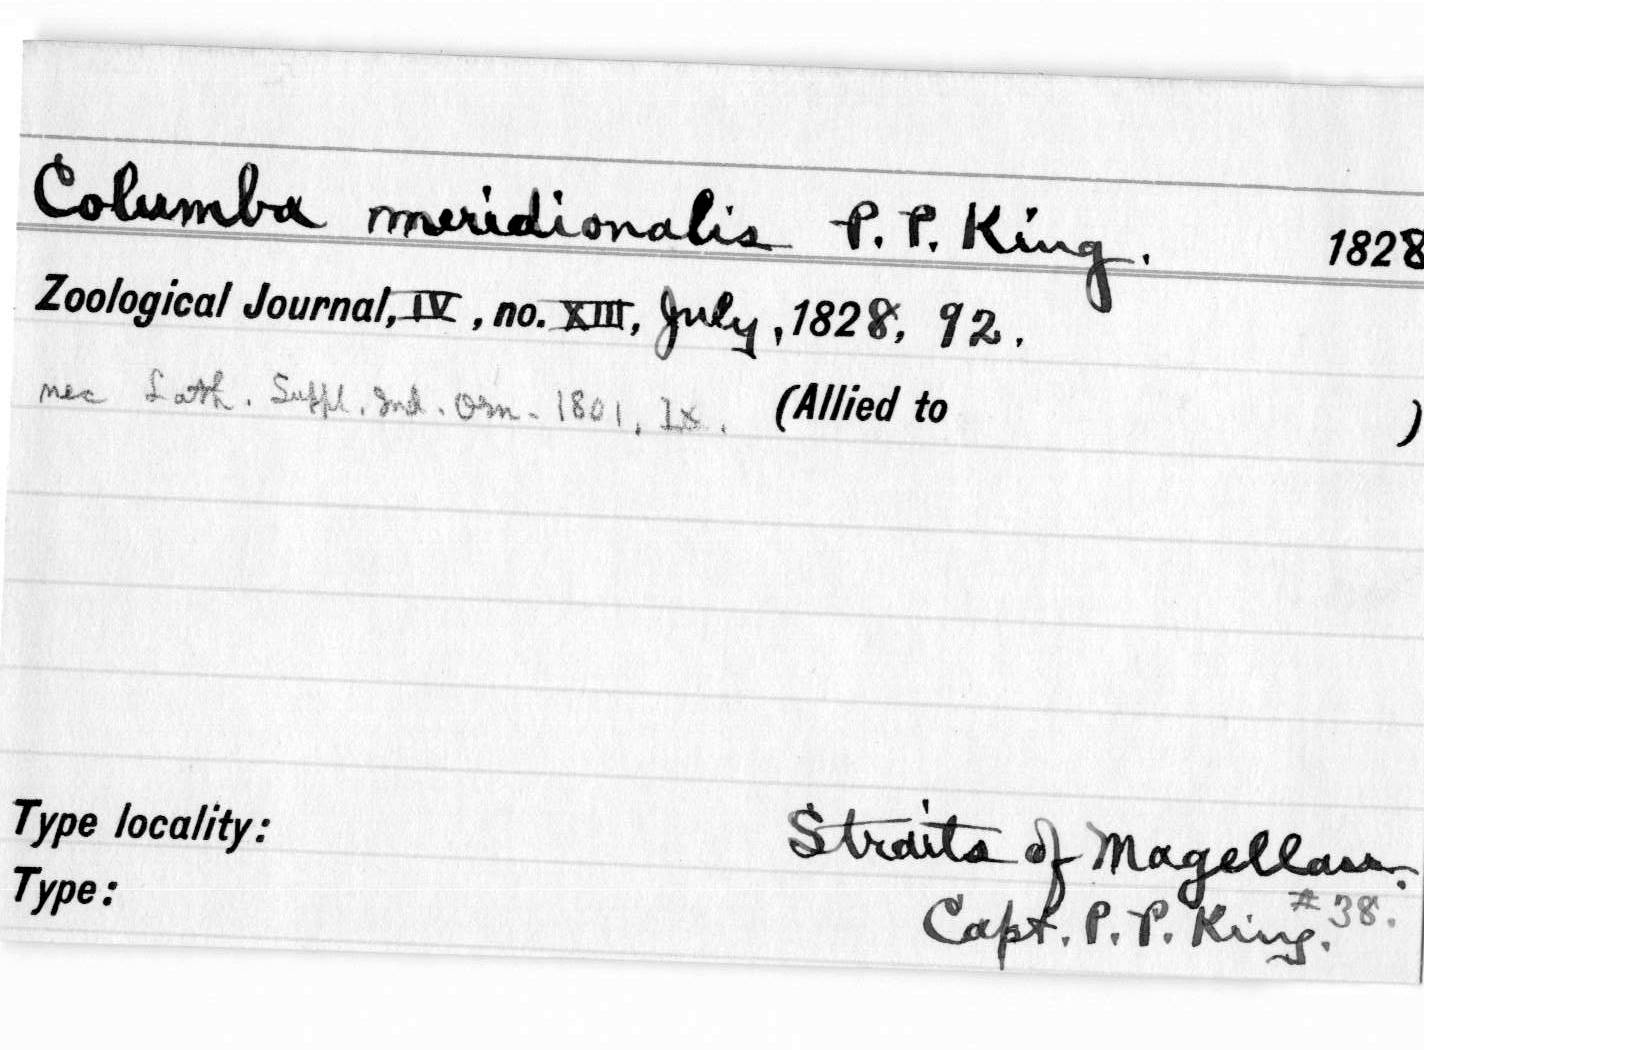 Columba meridionalis P. P. King. 1828
Zoological Journal, IV, no. XIII, July, 1828, 92.
nec Lath. Suppl. Ind. Orn. 1801, lx. (Allied to )
Type locality: Straits of Magellan.
Type: Capt. P. P. King. #38.